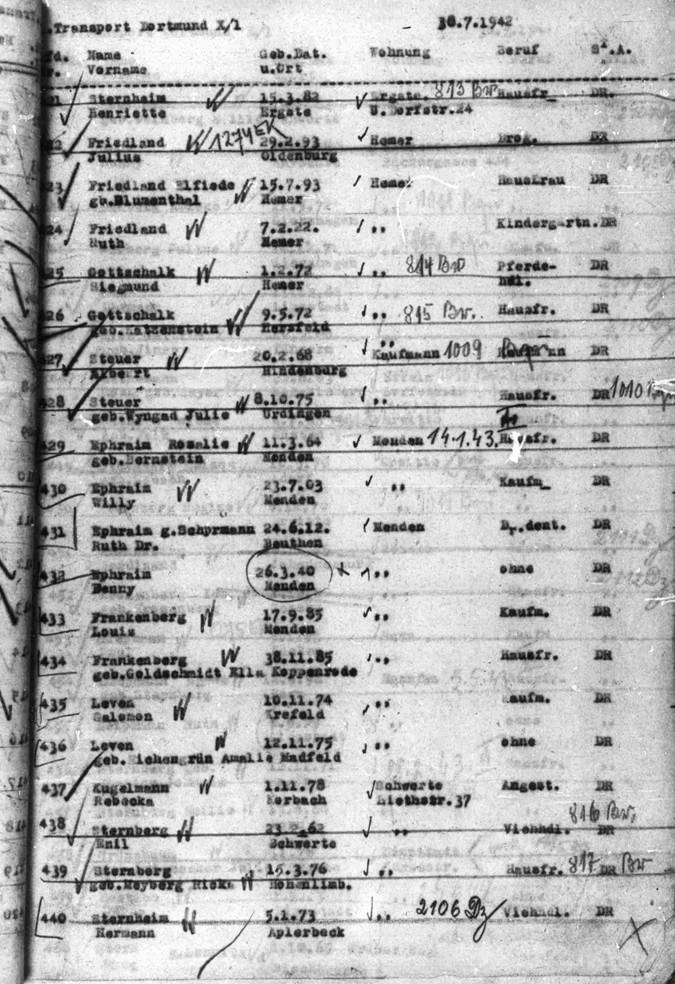 .Transport Dortmund X/1 30.7.1942
fd. Name Geb.Dat. Wohnung Beruf St.A.
r. Vorname u.Ort
21 Sternheim 15.3.82 Ergste 813 Bw Hausfr_ DR.
Henriette Ergste U.Dorfstr.24
22 Friedland 1274 EK 29.2.93 Hemer Drog. DR
Julius Oldenburg
23 Friedland Elfiede 15.7.93 Hemer Hausfrau DR
gb.Blumenthal Hemer
24 Friedland 7.2.22. ,, Kindergartn.DR
Ruth Hemer
425 Gottschalk 1.2.72 ,, 814 Bw Pferde- DR
Siegmund Hemer hdl.
426 Gottschalk 9.5.72 ,, 815 Bw. Hausfr. DR
geb.Katzenstein Hersfeld
427 Steuer 20.2.68 Kaufmann 1009 DR
Albert Hindenburg
428 Steuer 8.10.75 ,, Hausfr. DR 1010
geb.Wyngad Julie Ürdingen
429 Ephraim Rosalie 11.3.64 Menden 14.1.43. Hausfr. DR
geb.Bernstein Menden
430 Ephraim 23.7.03 ,, Kaufm_ DR
Willy Menden
431 Ephraim g.Schprmann 24.6.12. Menden Dr.dent. DR
Ruth Dr. Beuthen
432 Ephraim 26.3.40 x ,, ohne DR
Denny Menden
433 Frankenberg 17.9.85 ,, Kaufm. DR
Louis Menden
434 Frankenberg 38.11.85 ,, Hausfr. DR
geb.Goldschmidt Ella Koppenrode
435 Leven 10.11.74 ,, Kaufm. DR
Salomon Krefeld
436 Leven 12.11.75 ,, ohne DR
geb.Eichengrün Amalie Madfeld
437 Kugelmann 1.11.78 Schwerte Angest. DR
Rebecka Korbach Liethstr.37
816 Bw.
438 Sternberg 23.2.62 ,, Viehhdl. DR
Emil Schwerte
439 Sternberg 15.3.76 ,, Hausfr. 817 DR Bw
geb.Meyberg Ricka Hohenlimb.
440 Sternheim 5.1.73 ,, 2106 Dz Viehhdl. DR
Hermann Aplerbeck